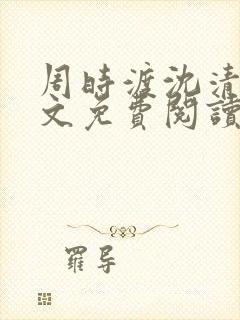 周時渡沈清
文免費閱讀
羅导